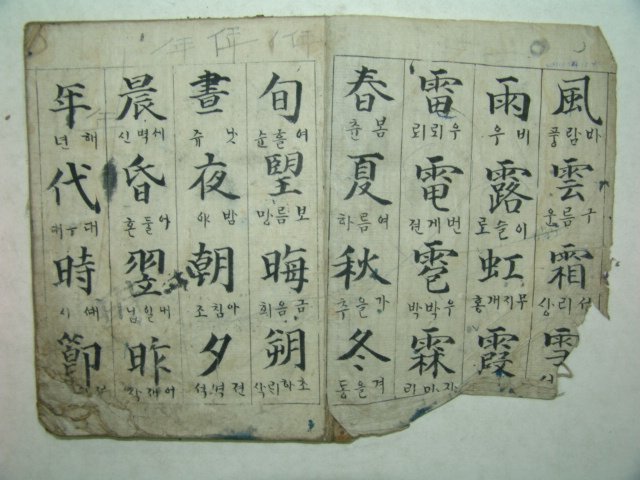 風 바람풍 雲 구름운 霜 서리상 雪
雨 비우 露 이슬로 虹 무지개홍 霞
雷 우뢰뢰 電 번게젼 雹 우박박 霖
春 봄츈 夏 여름하 秋 가을추 冬 겨을동
旬 여흘순 望 보름망 晦 금음회 朔 초하리삭
晝 낫쥬 夜 밤야 朝 아침조 夕 져녁석
晨 새벽신 昏 어둘혼 翌 내일닙 昨 어제작
年 해년 代 時 때시 節
年 年 年